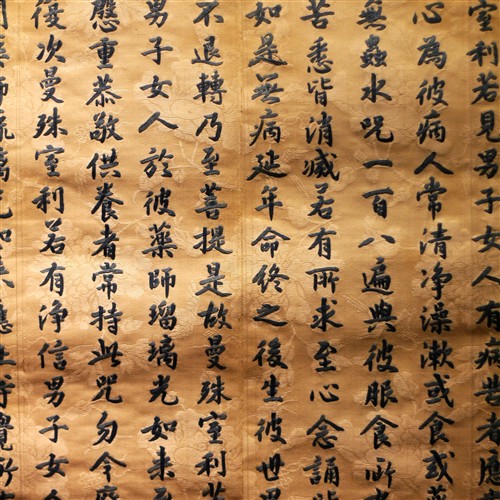 室利若見男子女人有病苦者應
心為彼病人常清淨澡漱或食或藥
無蟲水呪一百八遍與彼服食所
苦悉皆消滅若有所求至心念誦皆
如是無病延年命終之後生彼世界
不退轉乃至菩提是故曼殊室利若
男子女人於彼藥師瑠璃光如來至
應重恭敬供養者常持此呪勿令廢
復次曼殊室利若有淨信男子女人
師琉璃光如來應正等覺所